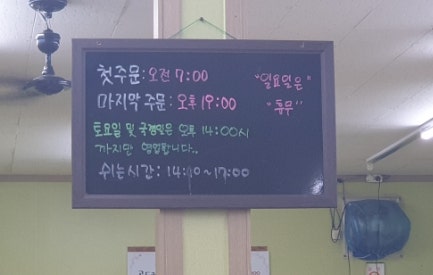 첫주문: 오전 7:00
마지막 주문: 오후 19:00
"일요일은"
"휴무"
토요일 및 국경일은 오후 14:00시
까지만 영업합니다..
쉬는시간: 14:40~17:00